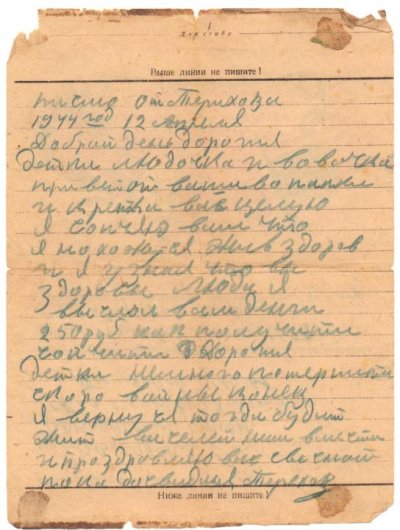 Для семьи
Выше линии не пишите!
письмо от Терихова
1944 год 12 Апреля
Добрай день дорогия
детки Людочка и вовочка
привет от вашево папки
и крепка вас целую
я сопчаю вам что
я нахожуся жыв здоров
и я узнал что вы
здоровы Люди я
выслал вам денги
250 руб как получити
сопчити Дорогия
детки немного потерпити
скоро вайны конец
я вернуся тогди будит
жит виселей нам вмести
и проздравляю вас с
пока Досвидания Терехов
Ниже линии не пишите!